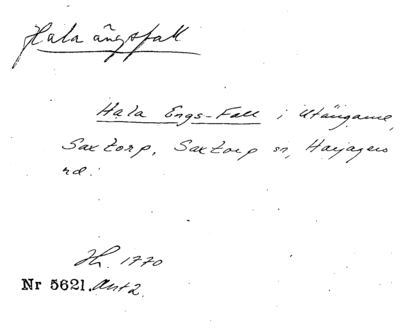 Hala ängsfall
Hala Engs-Fall i Utängarne,
Saxtorp, Saxtorp sn, Harjagers
rd.
Hh. 1770
Nr 5621. Akt 2.